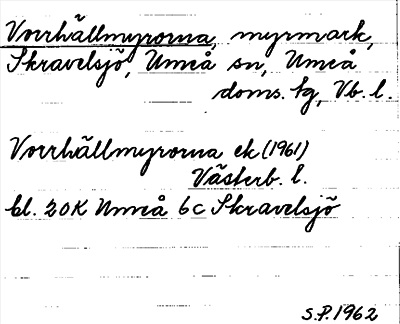 Vorrhällmyrorna, myrmark,
Skravelsjö, Umeå sn, Umeå
doms. tg, Vb. l.
Vorrhällmyrorna ek (1961)
Västerb. l.
bl. 20K Umeå 6c Skravelsjö
S.P. 1962